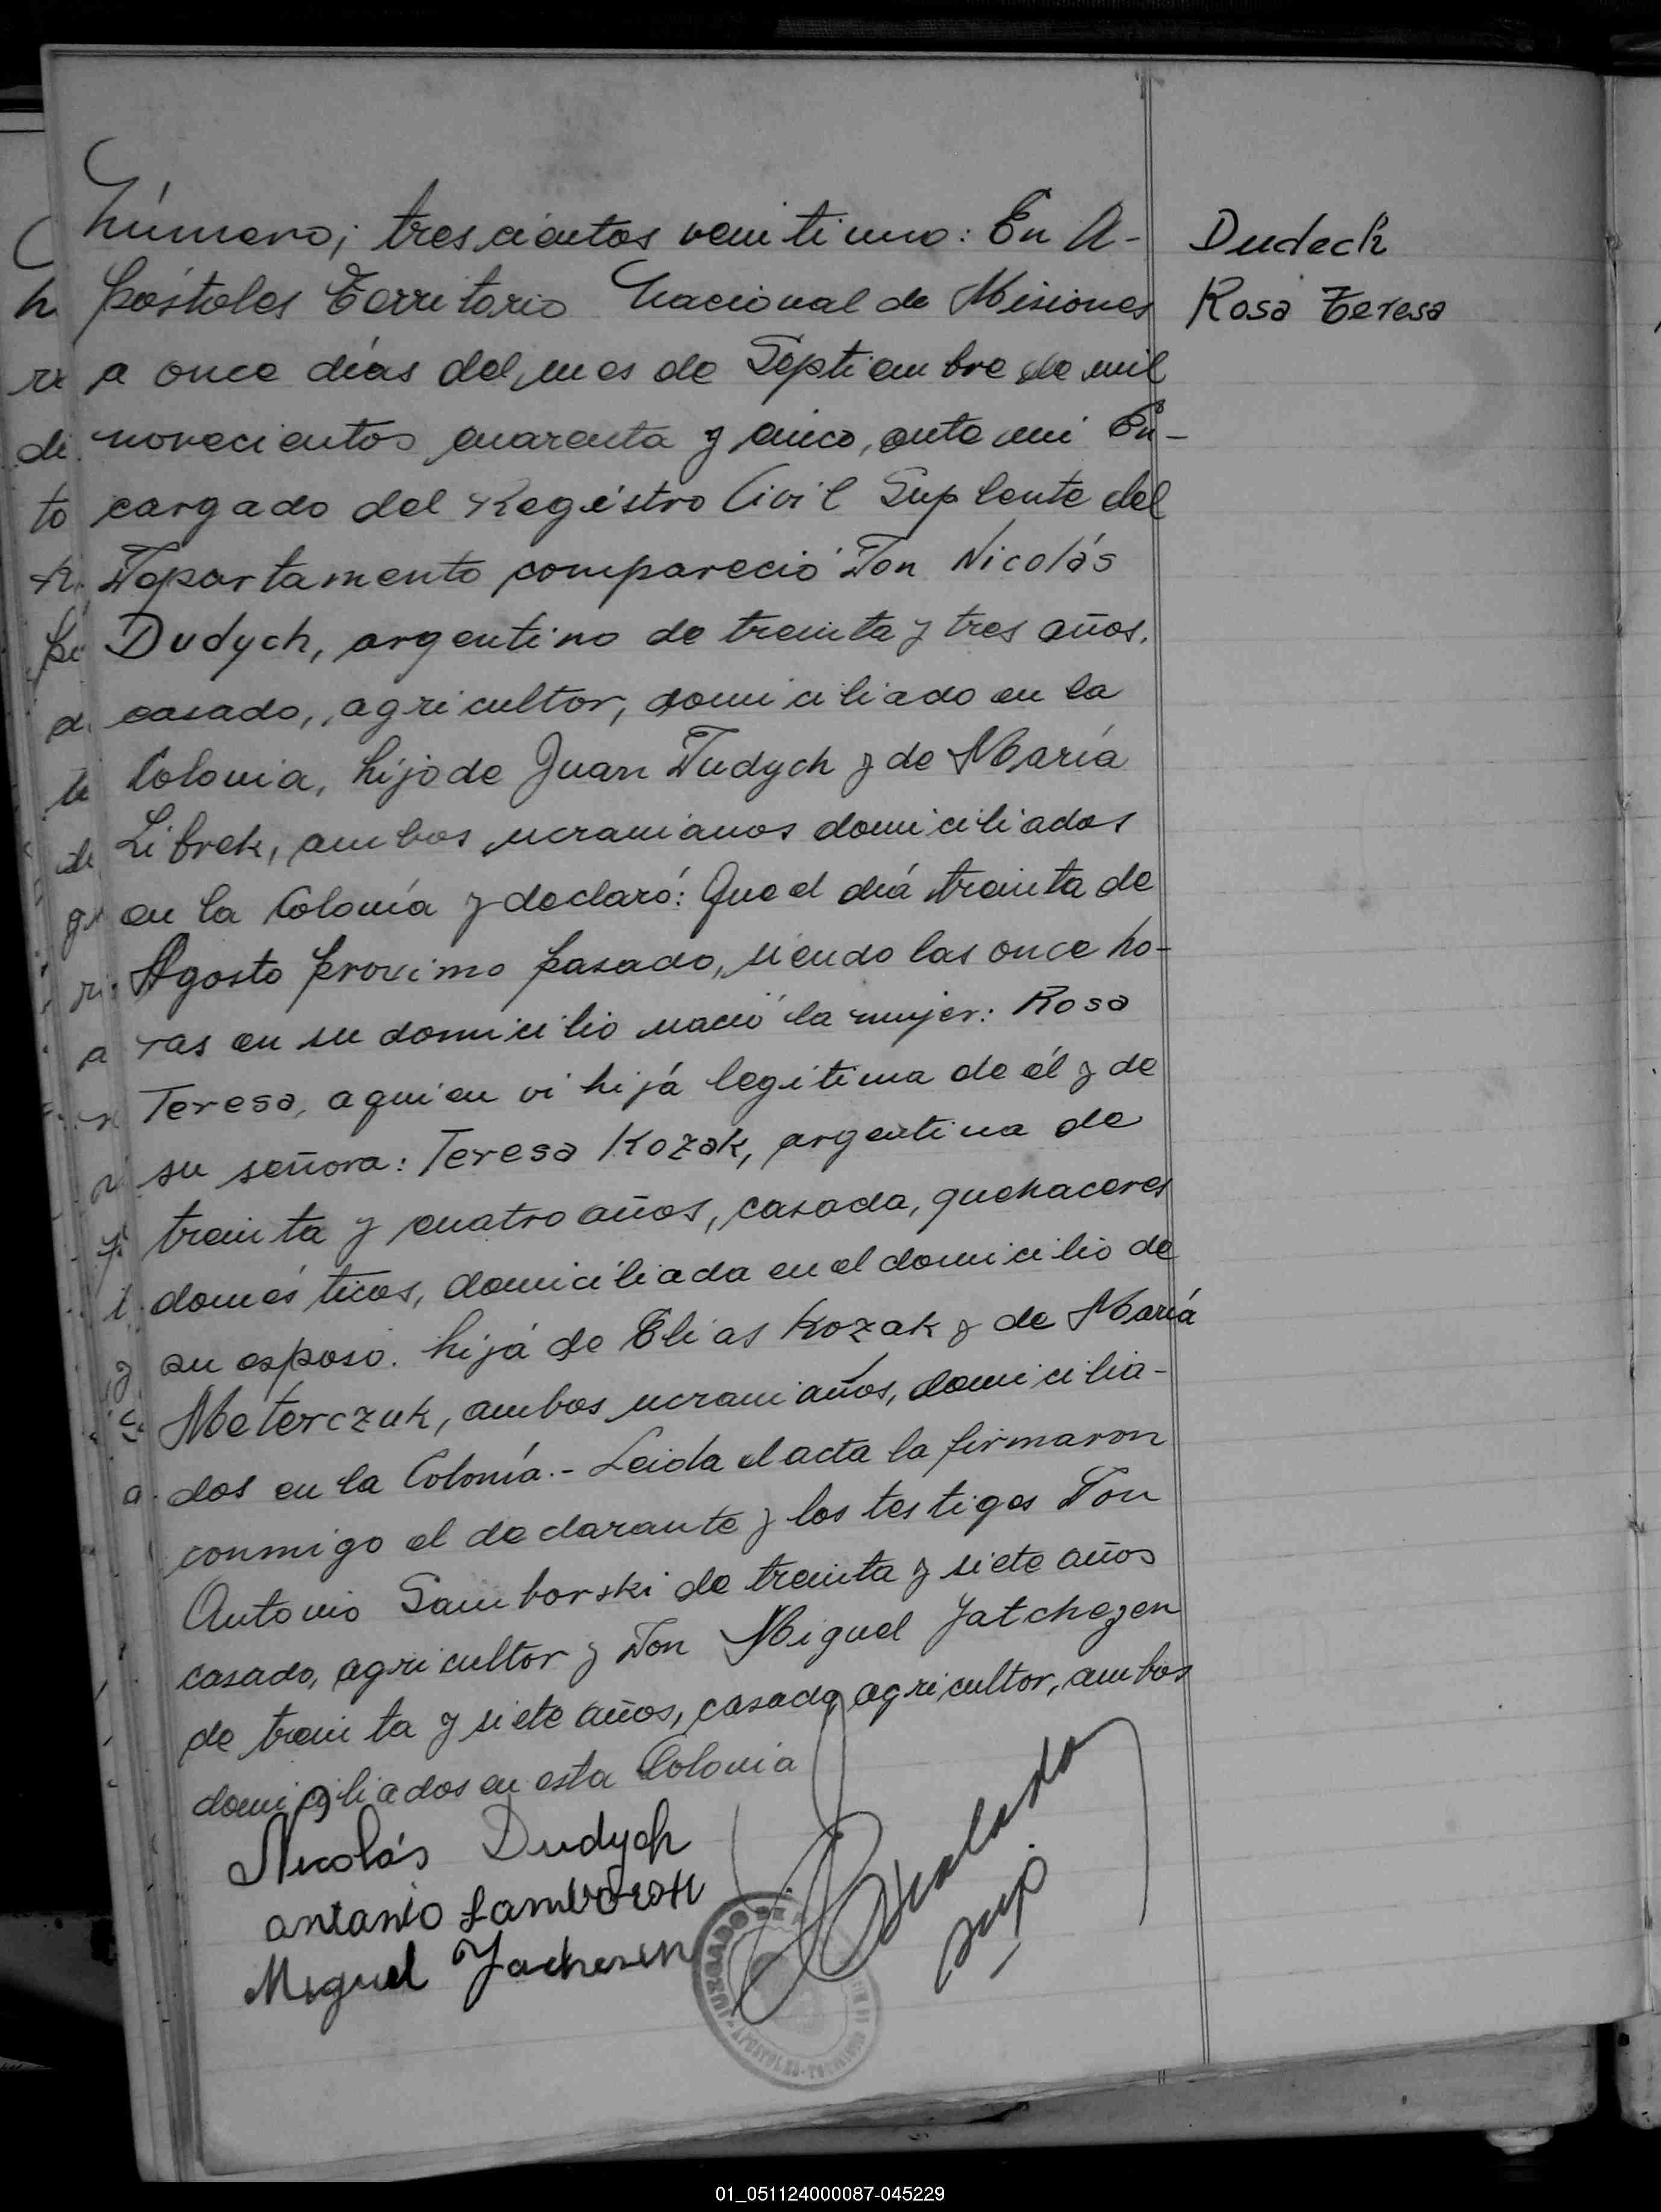 Número; tres cientos veintiuno: En A-
póstoles Territorio Nacional de Misiones
a once días del mes de Septiembre de mil
novecientos cuarenta y cinco, ante mi En-
cargado del Registro Civil Suplente del
Departamento compareció Don Nicolás
Dudych, argentino de treinta y tres años,
casado, agricultor, domiciliado en la
Colonia, hijo de Juan Dudych y de María
Librek, ambos ucranianos domiciliados
en la Colonía y declaró: Que el diá treinta de
Agosto proximo pasado, siendo las once ho-
ras en su domicilio nació la mujer: Rosa
Teresa, a quien vi hijá legitima de él y de
su señora: Teresa Kozak, argentina de
treinta y cuatro años, casada, quehaceres
domésticos, domiciliada en el domicilio de
su esposo. hijá de Elias Kozak y de María
Meterczuk, ambos ucranianos, domicilia-
dos en la Colonía.- Leida el acta la firmaron
conmigo el declarante y los testigos Don
Antonio Samborski de treinta y siete años
casado, agricultor y Don Miguel Jatchezen
de treinta y siete años, casado, agricultor, ambos
domiciliados en esta Colonia
Nicolás Dudych
Antonio
Miguel
sup
JUZGADO DE
APOSTOLES
Dudeck
Rosa Teresa
01_051124000087-045229